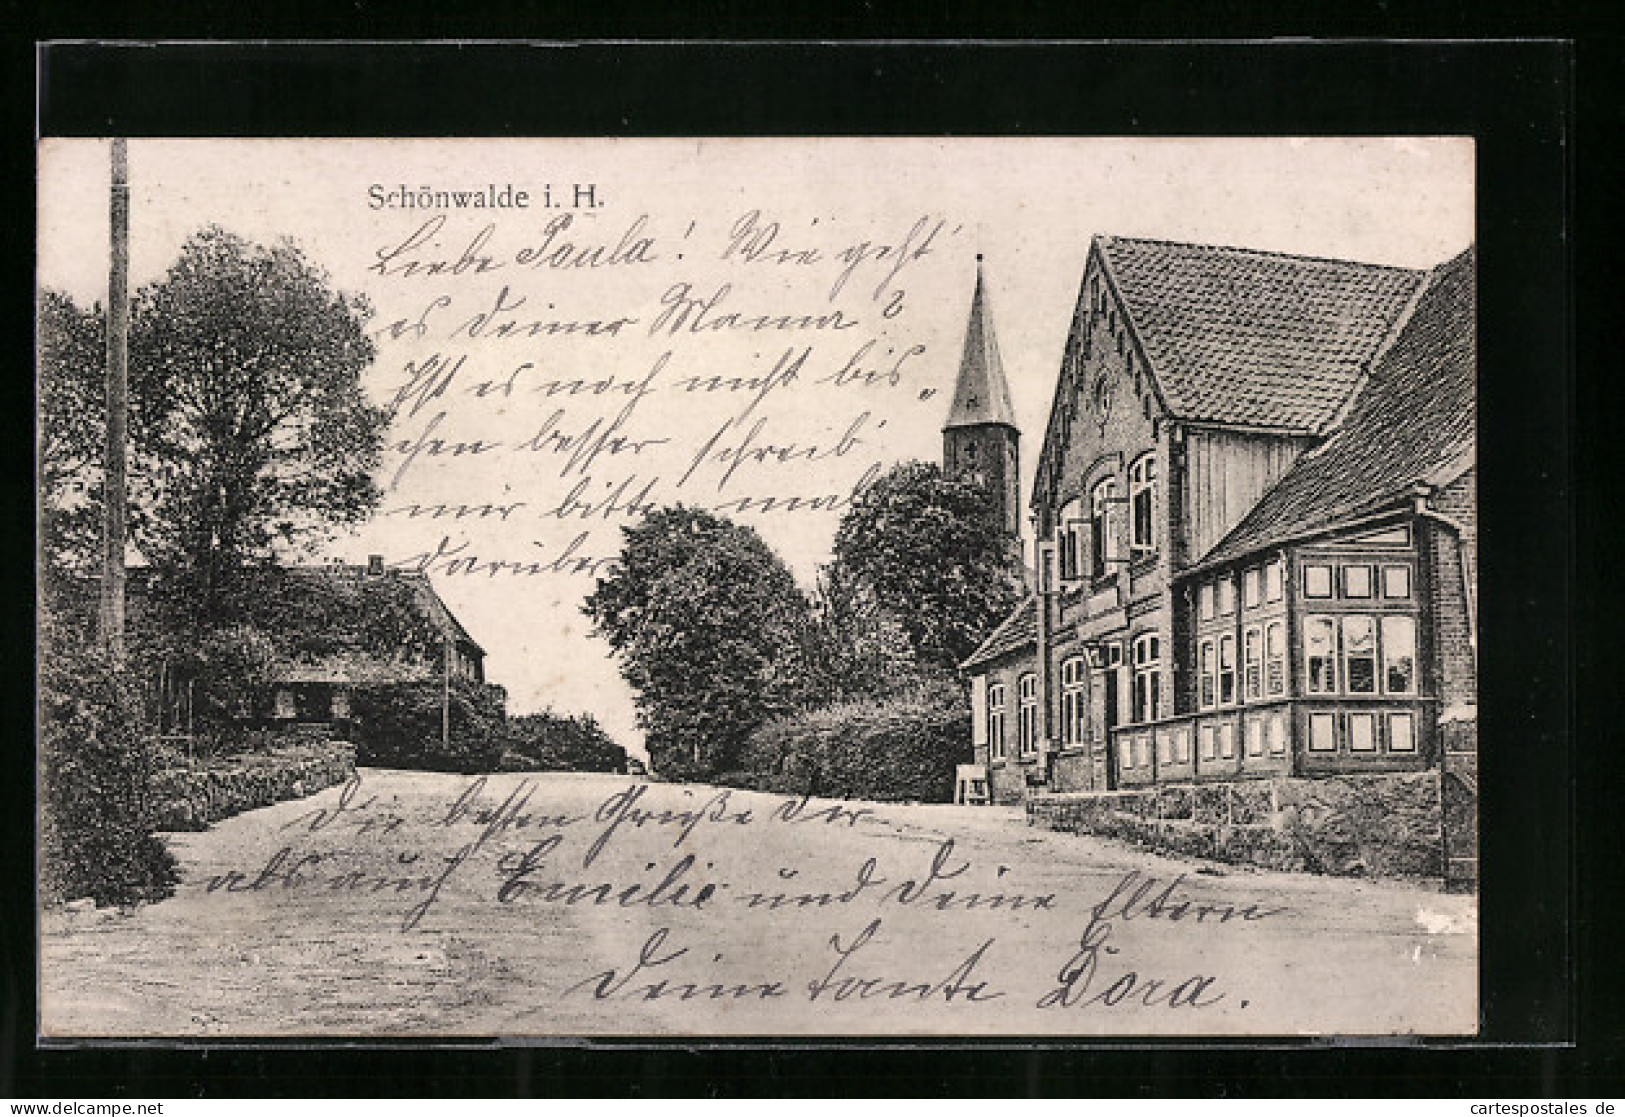 Schönwalde i. H.
Liebe Paula! Wie geht
es deiner Mama?
Ist es noch nicht bis„
chen besser schreib'
mir bitte mal
darüber
Die besten Grüße Dir
als auch Emilie und deine Eltern
Deine Tante Dora.
cartespostales de